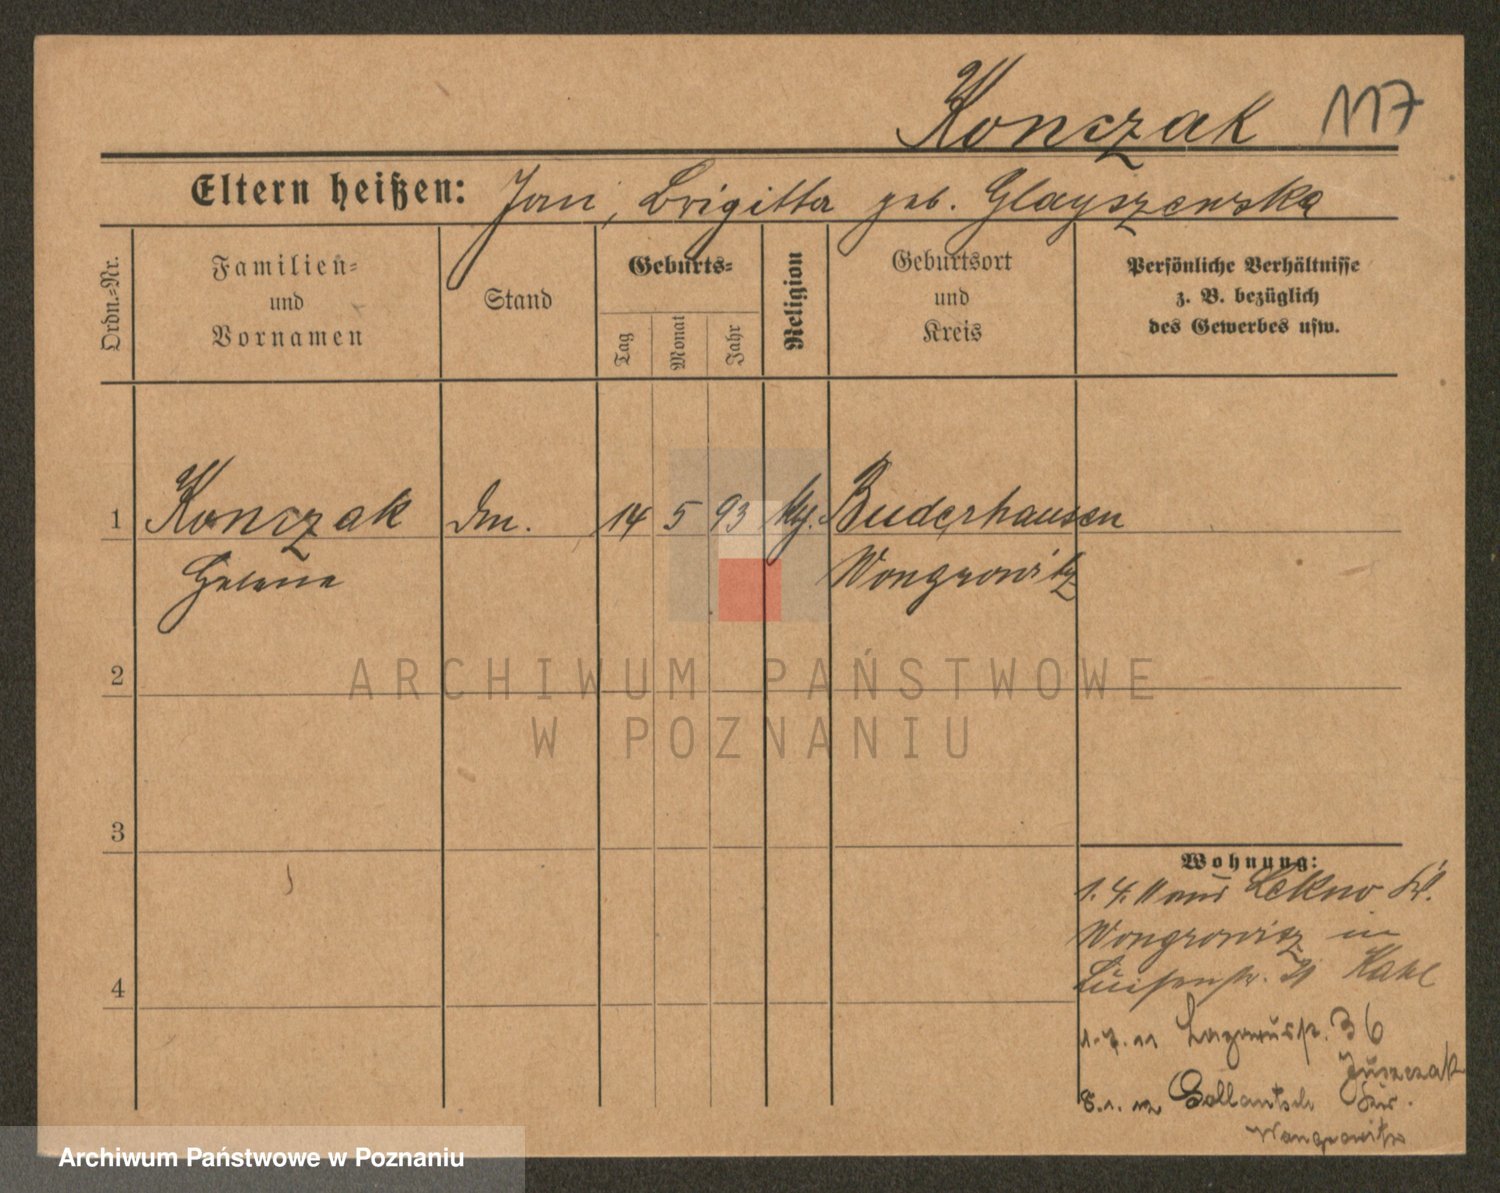 Konczak 117
Eltern heißen: Jan, Brigitta geb.
Ordn.-Nr.
Familien-
und
Vornamen
Stand
Geburts-
Tag
Monat
Jahr
Religion
Geburtsort
und
Kreis
Persönliche Verhältnisse
z. B. bezüglich
des Gewerbes usw.
1 Konczak 14 5 93 Buderhausen
Helene Wongrowitz
2
ARCHIWUM PAŃSTWOWE
W POZNANIU
3
Wohnung:
1.4.11 aus Lekno Kr.
Wongrowitz in
Luisenstr. 21
4
1.7.11 Lazarusstr. 36
Juszczak
8.1.12 Gollantsch Kr.
Wongrowitz
Archiwum Państwowe w Poznaniu